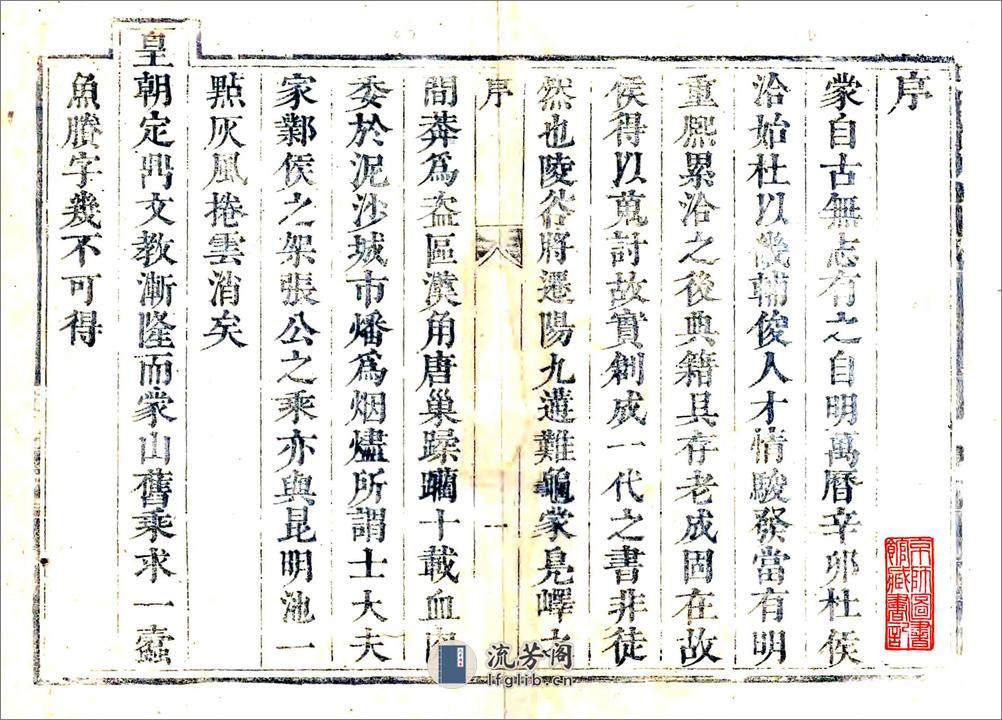 序
蒙自古無志有之自明萬曆辛卯杜侯
洽始杜以畿輔俊人才情駿發當有明
重熙累洽之後典籍具存老成固在故
侯得以蒐討故實創成一代之書非徒
然也陵谷將遷陽九遘難龜蒙鳧嶧之
序
一
間莽爲盗區漢角唐巢蹂躪十載血肉
委於泥沙城市燔爲烟燼所謂士大夫
家鄴侯之架張公之乘亦與昆明池一
點灰風捲雲消矣
皇朝定鼎文教漸隆而蒙山舊乘求一蠹
魚賸字幾不可得
京師圖書
館藏書記
流芳阁
lfglib.cn